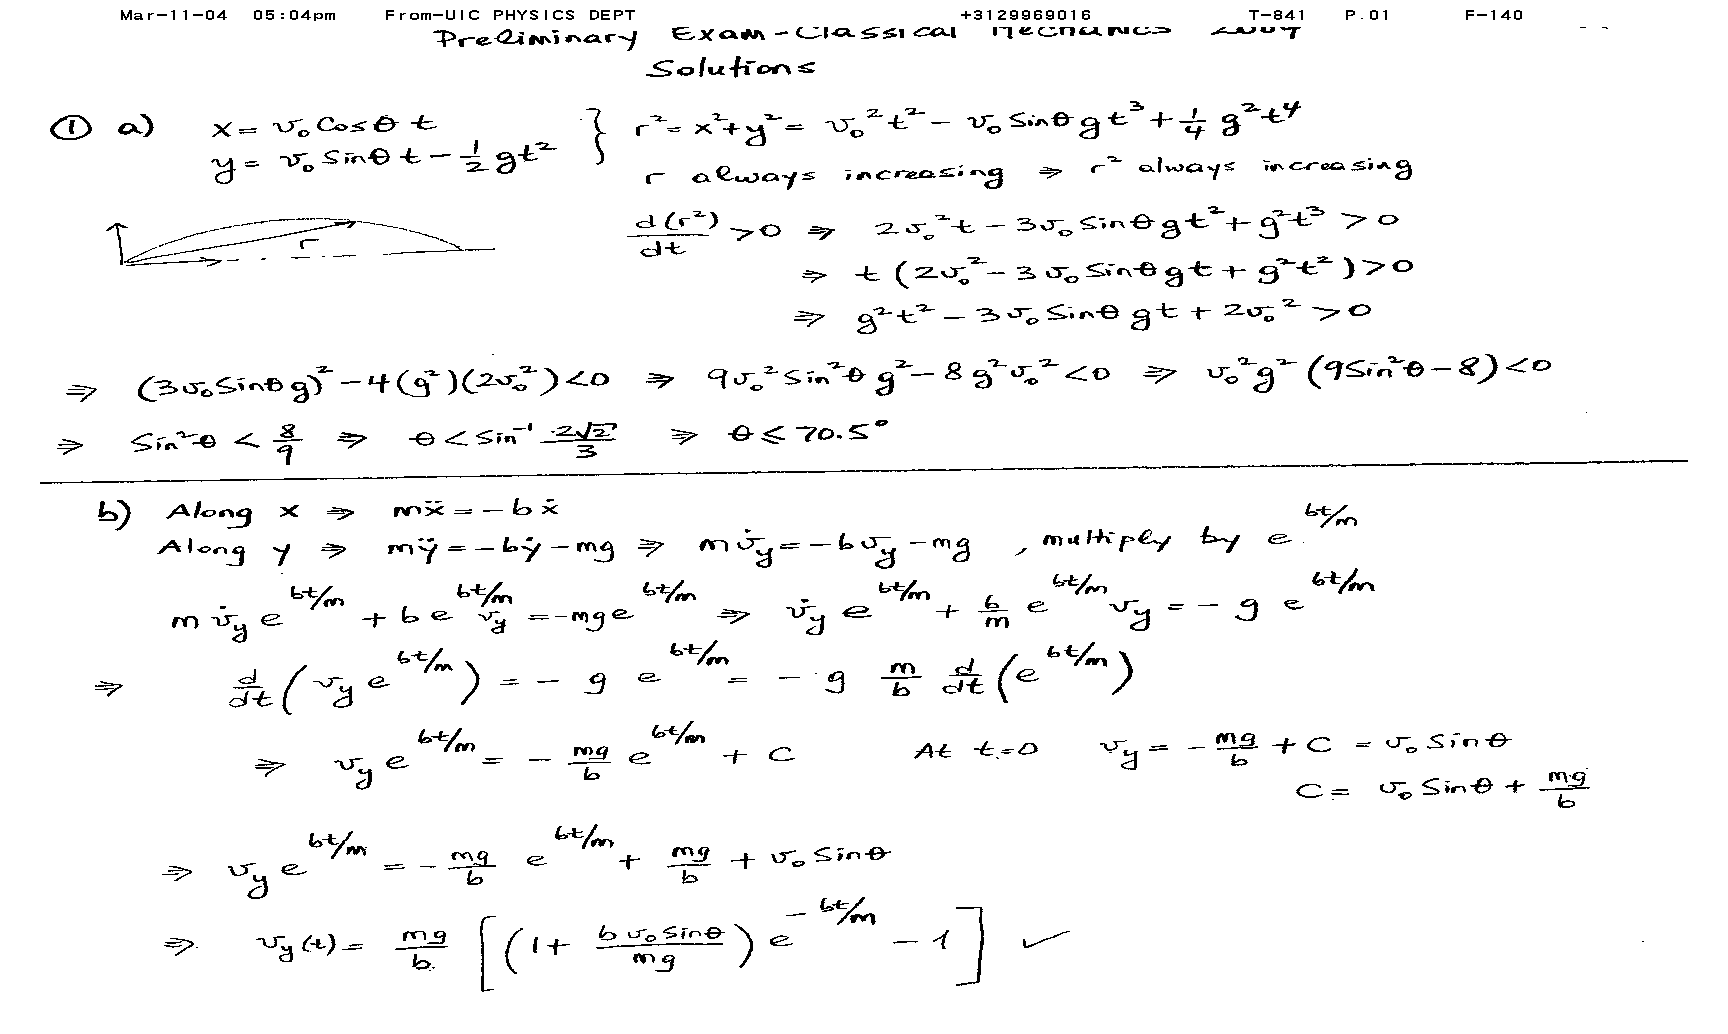 Mar-11-04 05:04pm From-UIC PHYSICS DEPT +3129969016 T-841 P.01 F-140
Preliminary Exam - Classical Mechanics 2004
Solutions
① a) x = v₀ Cosθ t
y = v₀ Sinθ t - 1/2 gt² } r² = x² + y² = v₀²t² - v₀ Sinθ gt³ + 1/4 g²t⁴
r always increasing ⇒ r² always increasing
r
d(r²)/dt > 0 ⇒ 2v₀²t - 3v₀ Sinθ gt² + g²t³ > 0
⇒ t (2v₀² - 3v₀ Sinθ gt + g²t²) > 0
⇒ g²t² - 3v₀ Sinθ gt + 2v₀² > 0
⇒ (3v₀ Sinθ g)² - 4(g²)(2v₀²) < 0 ⇒ 9v₀² Sin²θ g² - 8g²v₀² < 0 ⇒ v₀²g² (9Sin²θ - 8) < 0
⇒ Sin²θ < 8/9 ⇒ θ < Sin⁻¹ 2√2/3 ⇒ θ ≤ 70.5°
b) Along x ⇒ mẍ = -bẋ
Along y ⇒ mÿ = -bẏ - mg ⇒ mv̇y = -bvy - mg , multiply by e^(bt/m)
mv̇y e^(bt/m) + b e^(bt/m) vy = -mg e^(bt/m) ⇒ v̇y e^(bt/m) + b/m e^(bt/m) vy = -g e^(bt/m)
⇒ d/dt (vy e^(bt/m)) = -g e^(bt/m) = -g m/b d/dt (e^(bt/m))
⇒ vy e^(bt/m) = - mg/b e^(bt/m) + C At t=0 vy = - mg/b + C = v₀ Sinθ
C = v₀ Sinθ + mg/b
⇒ vy e^(bt/m) = - mg/b e^(bt/m) + mg/b + v₀ Sinθ
⇒ vy(t) = mg/b [(1 + b v₀ Sinθ/mg) e^(-bt/m) - 1] ✓